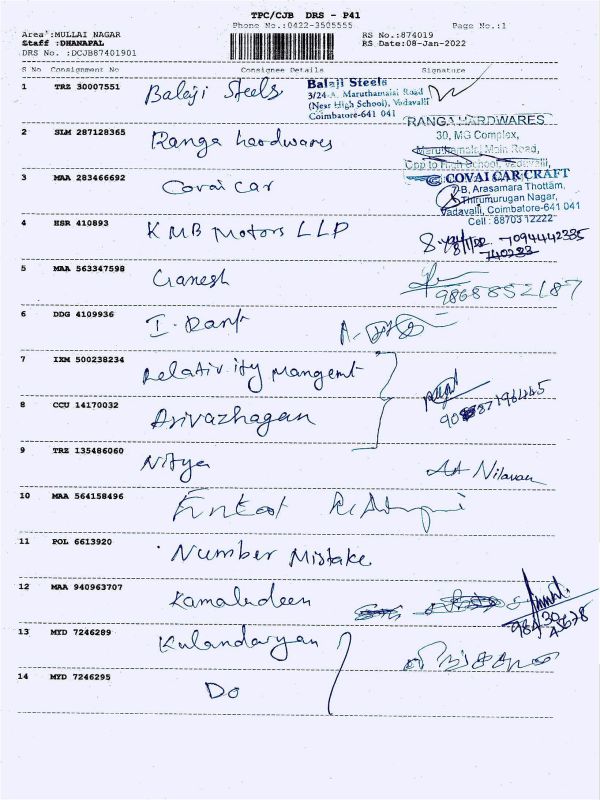 TPC/CJB DRS - P41
Phone No.:0422-3505555 Page No.:1
Area :MULLAI NAGAR RS No.:874019
Staff :DHANAPAL RS Date:08-Jan-2022
DRS No. :DCJB87401901
S No Consignment No Consignee Details Signature
1 TRZ 30007551 Balaji Steels
Balaji Steels
3/24-A, Maruthamalai Road
(Near High School), Vadavalli
Coimbatore-641 041
2 SLM 287128365 Ranga hardwares
RANGA HARDWARES
30, MG Complex,
Maruthamalai Main Road,
Opp to High School, Vadavalli,
3 MAA 283466692 Covai car
COVAI CAR CRAFT
7-B, Arasamara Thottam,
Thirumurugan Nagar,
Vadavalli, Coimbatore-641 041
Cell : 88703 12222
4 HSR 410893 KMB Motors LLP
7094442335
740283
5 MAA 563347598 Ganesh
9868852187
6 DDG 4109936
7 IXM 500238234 Relativity Mangemt
8 CCU 14170032 Arivazhagan
9 TRZ 135486060 Nitya Nilavan
10 MAA 564158496
11 POL 6613920 Number Mistake
12 MAA 940963707 Kamaludeen
13 MYD 7246289
14 MYD 7246295 Do